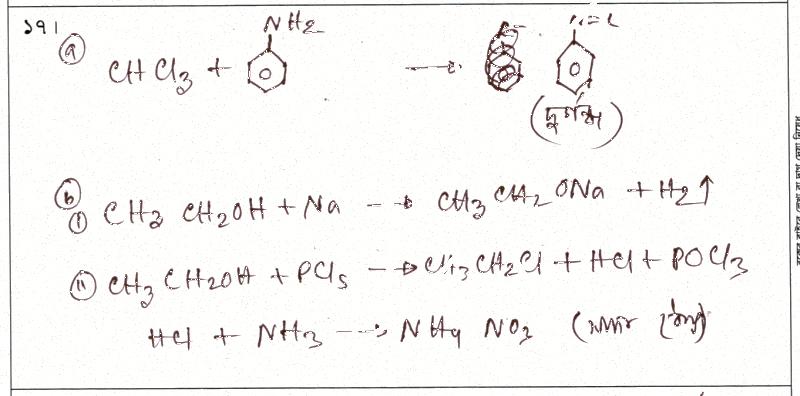 ১৭।
ⓐ NH2 N=C
CHCl3 + →
(দুর্গন্ধ)
ⓑ
ⓘ CH3 CH2OH + Na → CH3 CH2 ONa + H2↑
ⓘⓘ CH3 CH2OH + PCl5 → CH3 CH2Cl + HCl + POCl3
HCl + NH3 → NH4 NO3 (সাদা